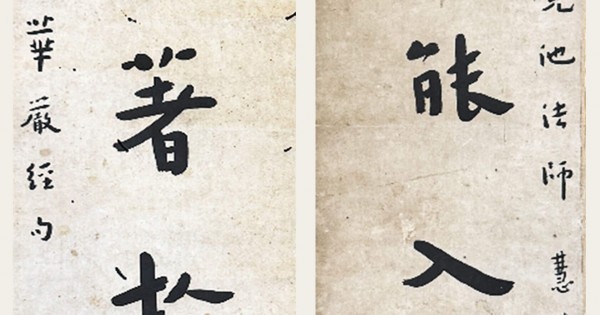 池法師慧
能入
著於
華嚴經句